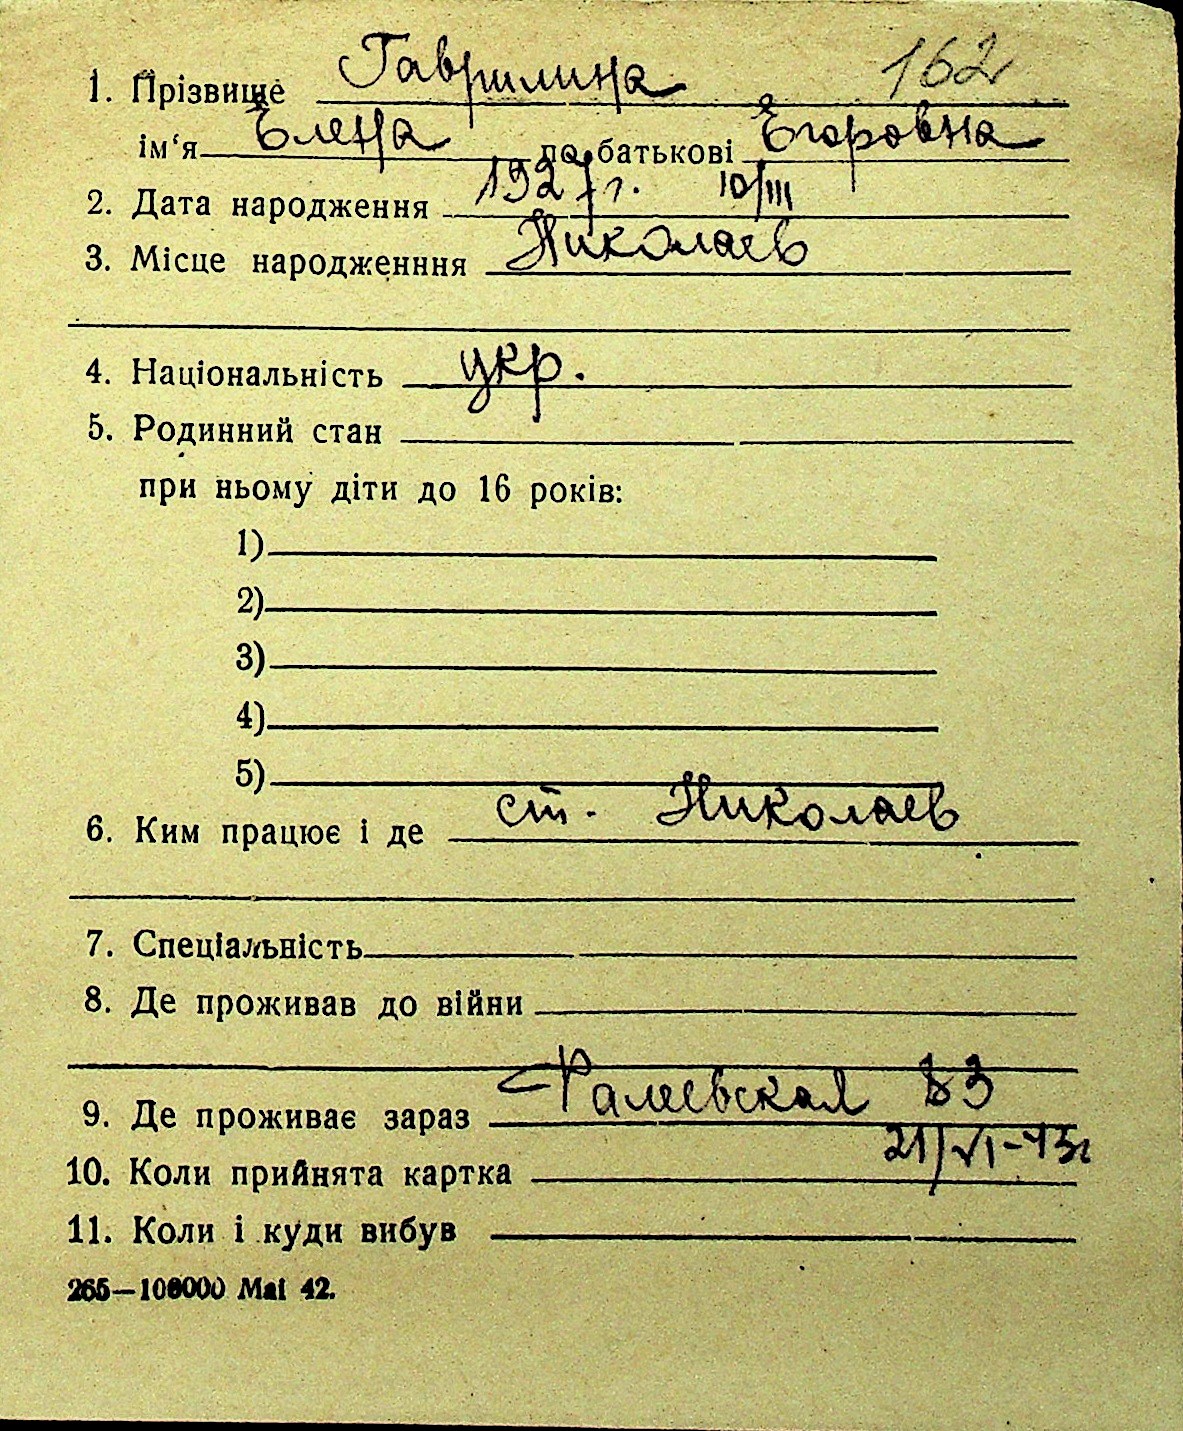 1. Прізвище Гаврилина 162
ім‘я Елена по батькові Егоровна
2. Дата народження 1927 г. 10/III
3. Місце народженння Николаев
4. Національність укр.
5. Родинний стан
при ньому діти до 16 років:
1)
2)
3)
4)
5)
6. Ким працює і де ст. Николаев
7. Спеціальність
8. Де проживав до війни
9. Де проживає зараз Фалеевская 83
10. Коли прийнята картка 21/VI-43г
11. Коли і куди вибув
265—100000 Mai 42.